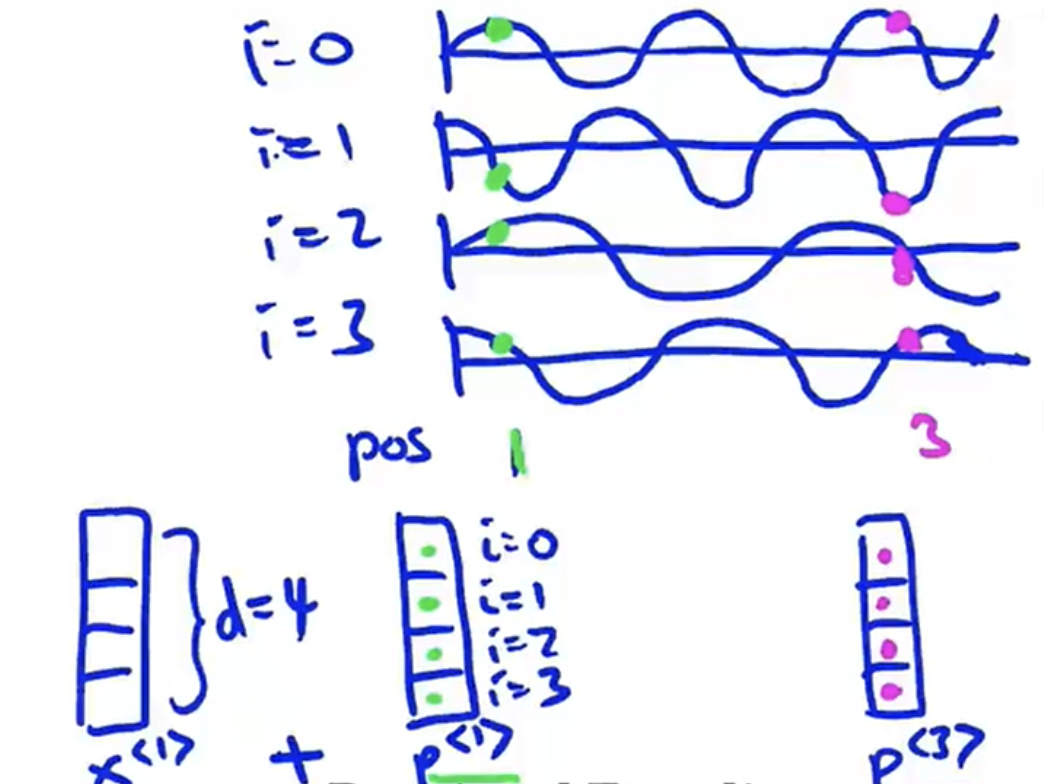 i=0
i=1
i=2
i=3
pos 1 3
d=4
i=0
i=1
i=2
i=3
x<1> + p<1> p<3>